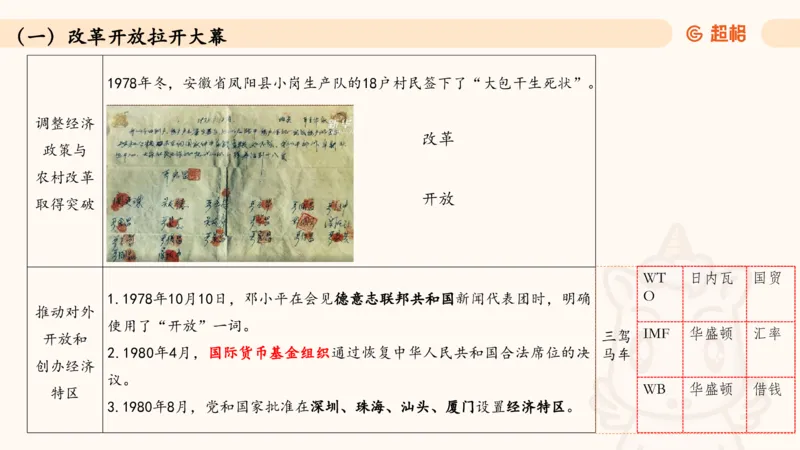 （一）改革开放拉开大幕
超格
调整经济
政策与
农村改革
取得突破
1978年冬，安徽省凤阳县小岗生产队的18户村民签下了“大包干生死状”。
改革
开放
推动对外
开放和
创办经济
特区
1.1978年10月10日，邓小平在会见德意志联邦共和国新闻代表团时，明确
使用了“开放”一词。
2.1980年4月，国际货币基金组织通过恢复中华人民共和国合法席位的决
议。
3.1980年8月，党和国家批准在深圳、珠海、汕头、厦门设置经济特区。
三驾
马车
WT
O
日内瓦
国贸
IMF
华盛顿
汇率
WB
华盛顿
借钱